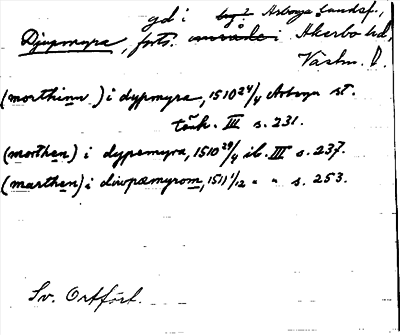 gd i by? Arboga landsf.,
Djupmyra, fots. område i Åkerbo hd,
Västm. D.
(morthinn) i dypmyra, 1510 24/4 Arboga st.
tänk. III s. 231.
(morthen) i dypemyra, 1510 29/4 ib. III s. 237.
(marthen) i diwpæmyrom, 1511 1/12 " " s. 253.
Sv. Ortfört.